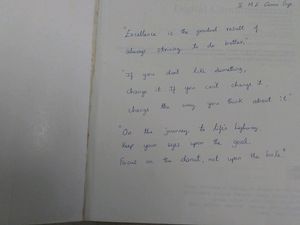 "Excellence is the gradual result of
always striving to do better."
"If you dont like something,
change it. If you can't change it,
change the way you think about it."
"On the journey to life's highway,
keep your eyes upon the goal.
Focus on the donut, not upon the hole."